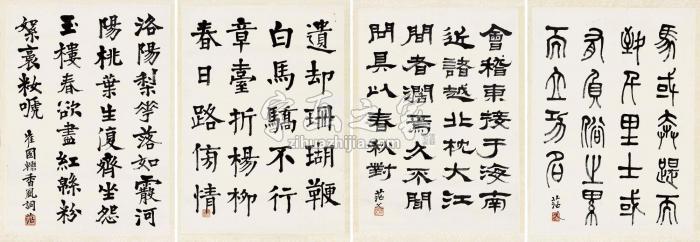 馬或奔踶而
致千里士或
有負俗之累
而立功名
茫父
會稽東接于海南
近諸越北枕大江
間者闊焉久不聞
問具以春秋對
茫父
遺却珊瑚鞭
白馬驕不行
章臺折楊柳
春日路傍情
洛陽梨華落如霰河
陽桃葉生復齊坐怨
玉樓春欲盡紅緜粉
絮裛粧嗁
崔國輔香風詞
字画之家
zihuazhijia.com